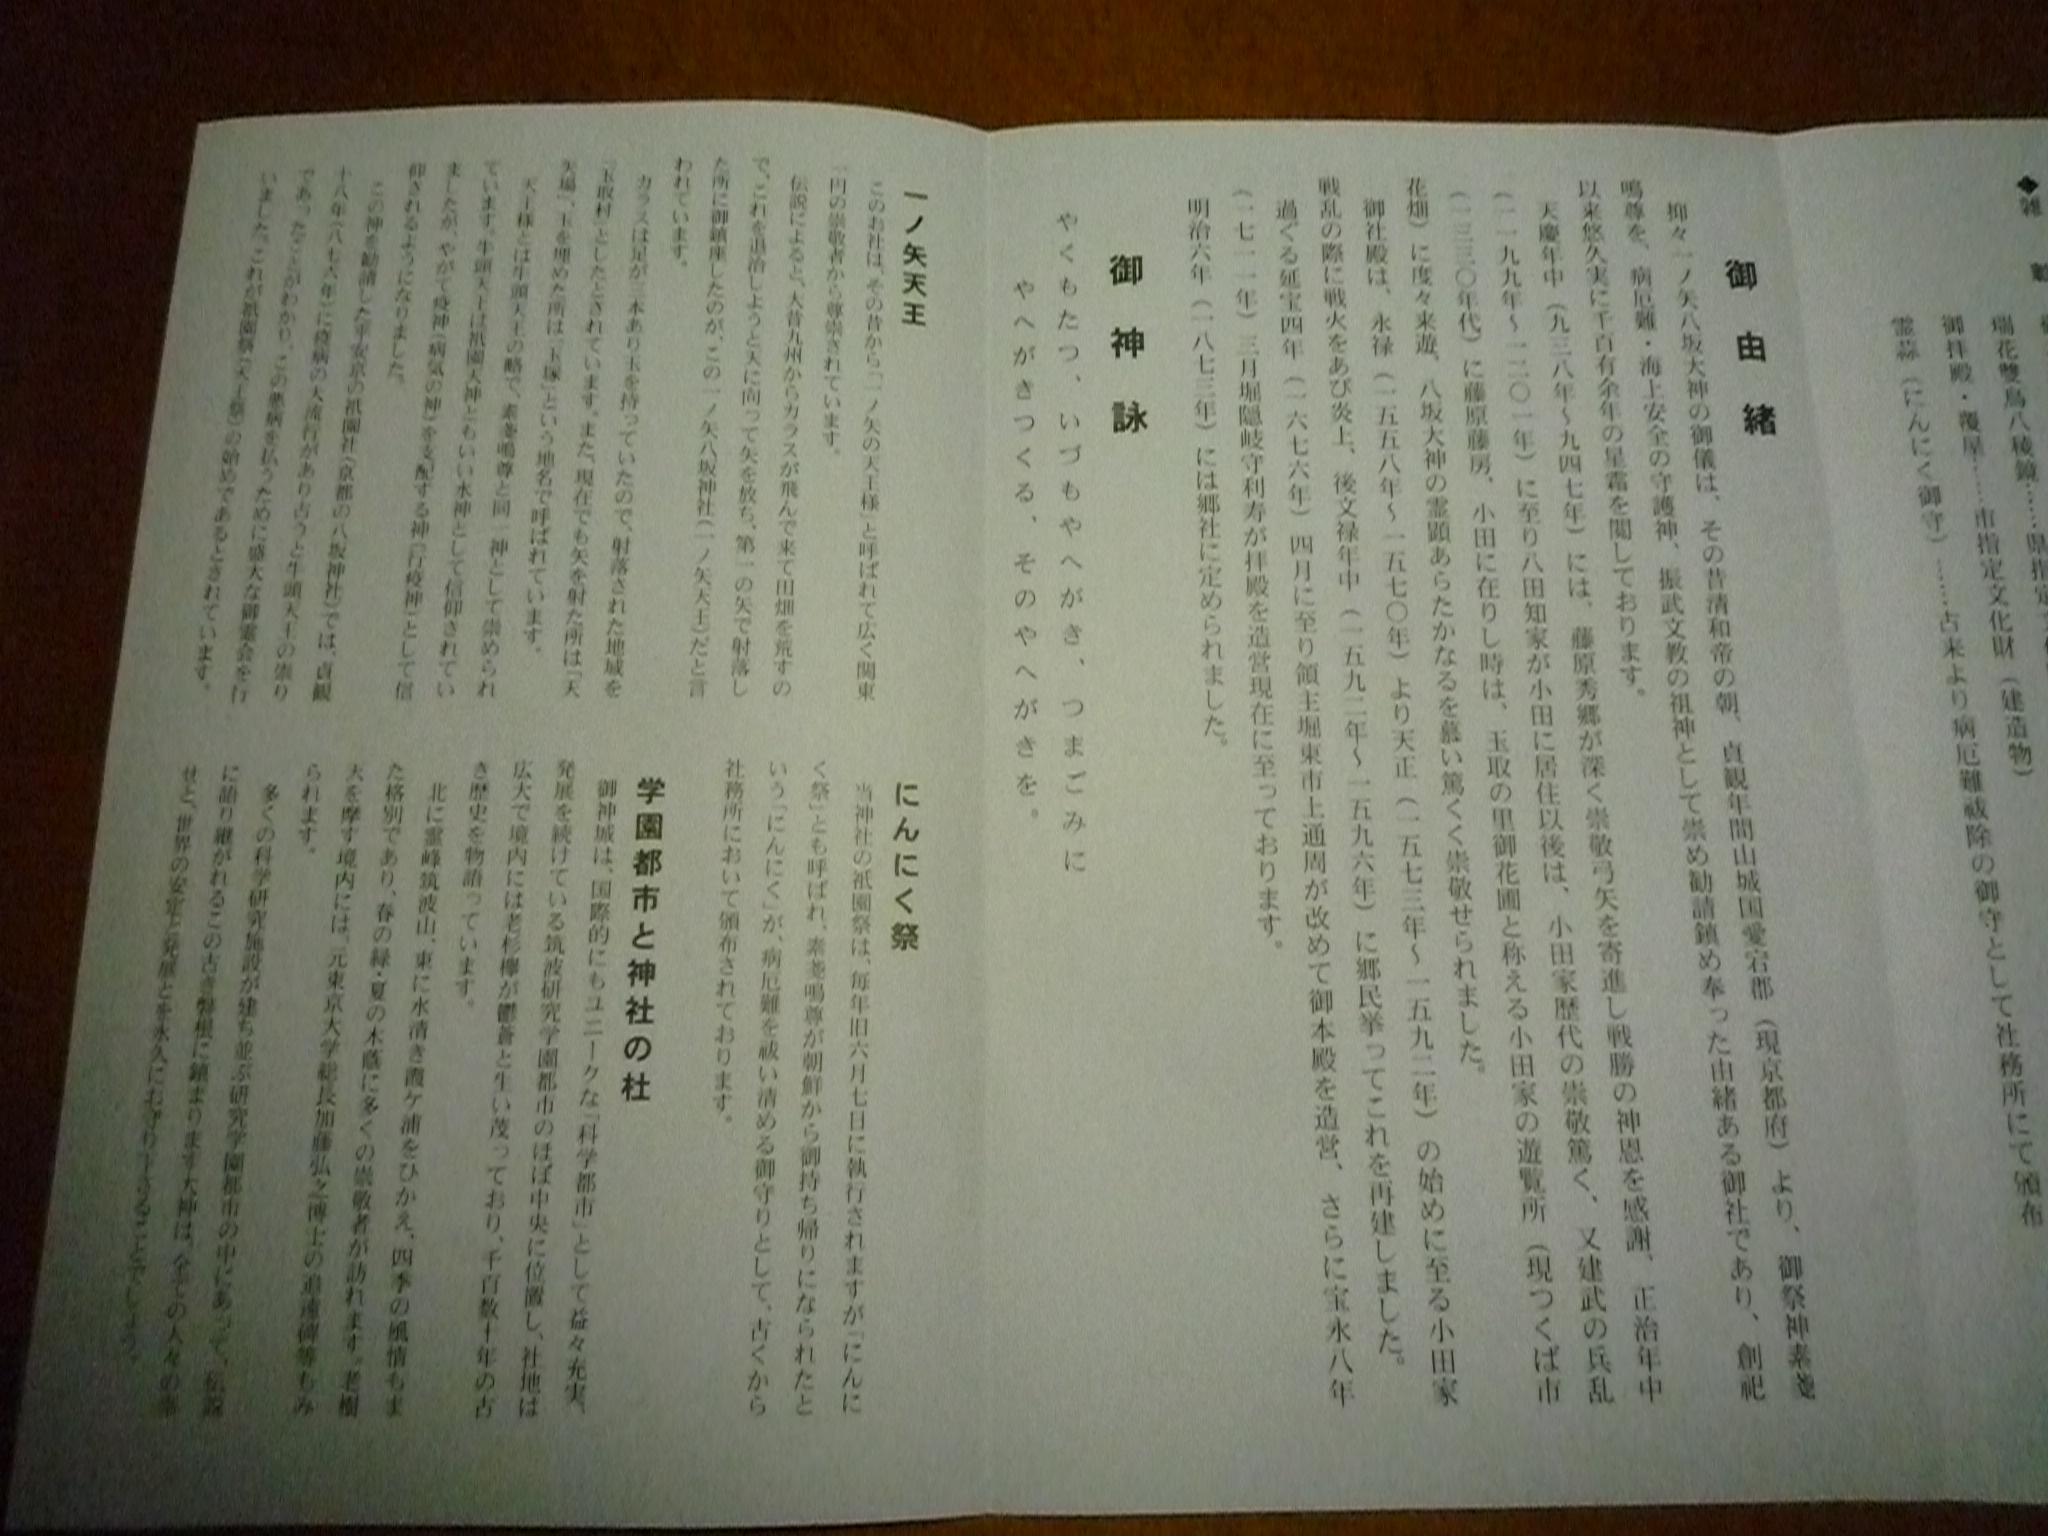 ◆雑
瑞花雙鳥八稜鏡……県指定文
御拝殿・覆屋……市指定文化財（建造物）
霊蒜（にんにく御守）……古来より病厄難祓除の御守として社務所にて頒布
御由緒
抑々一ノ矢八坂大神の御儀は、その昔清和帝の朝、貞観年間山城国愛宕郡（現京都府）より、御祭神素戔
嗚尊を、病厄難・海上安全の守護神、振武文教の祖神として崇め勧請鎮め奉った由緒ある御社であり、創祀
以来悠久実に千百有余年の星霜を閲しております。
天慶年中（九三八年～九四七年）には、藤原秀郷が深く崇敬弓矢を寄進し戦勝の神恩を感謝、正治年中
（一一九九年～一二〇一年）に至り八田知家が小田に居住以後は、小田家歴代の崇敬篤く、又建武の兵乱
（一三三〇年代）に藤原藤房、小田に在りし時は、玉取の里御花圃と称える小田家の遊覧所（現つくば市
花畑）に度々来遊、八坂大神の霊顕あらたかなるを慕い篤くく崇敬せられました。
御社殿は、永禄（一五五八年～一五七〇年）より天正（一五七三年～一五九二年）の始めに至る小田家
戦乱の際に戦火をあび炎上、後文禄年中（一五九二年～一五九六年）に郷民挙ってこれを再建しました。
過ぐる延宝四年（一六七六年）四月に至り領主堀東市上通周が改めて御本殿を造営、さらに宝永八年
（一七一一年）三月堀隠岐守利寿が拝殿を造営現在に至っております。
明治六年（一八七三年）には郷社に定められました。
御神詠
やくもたつ、いづもやへがき、つまごみに
やへがきつくる、そのやへがきを。
一ノ矢天王
このお社は、その昔から「一ノ矢の天王様」と呼ばれて広く関東
一円の崇敬者から尊崇されています。
伝説によると、大昔九州からカラスが飛んで来て田畑を荒すの
で、これを退治しようと天に向って矢を放ち、第一の矢で射落し
た所に御鎮座したのが、この一ノ矢八坂神社（一ノ矢天王）だと言
われています。
カラスは足が三本あり玉を持っていたので、射落された地域を
「玉取村」としたとされています。また、現在でも矢を射た所は「天
矢場」、玉を埋めた所は「玉塚」という地名で呼ばれています。
天王様とは牛頭天王の略で、素戔嗚尊と同一神として崇められ
ています。牛頭天王は祇園天神ともいい水神として信仰されてい
ましたが、やがて疫神（病気の神）を支配する神（行疫神）として信
仰されるようになりました。
この神を勧請した平安京の祇園社（京都の八坂神社）では、貞観
十八年（八七六年）に疫病の大流行があり占うと牛頭天王の祟り
であったことがわかり、この悪病を払うために盛大な御霊会を行
いました。これが祇園祭（天王祭）の始めであるとされています。
にんにく祭
当神社の祇園祭は、毎年旧六月七日に執行されますが「にんに
く祭」とも呼ばれ、素戔嗚尊が朝鮮から御持ち帰りになられたと
いう「にんにく」が、病厄難を祓い清める御守りとして、古くから
社務所において頒布されております。
学園都市と神社の杜
御神域は、国際的にもユニークな「科学都市」として益々充実、
発展を続けている筑波研究学園都市のほぼ中央に位置し、社地は
広大で境内には老杉欅が鬱蒼と生い茂っており、千百数十年の古
き歴史を物語っています。
北に霊峰筑波山、東に水清き霞ケ浦をひかえ、四季の風情もま
た格別であり、春の緑・夏の木蔭に多くの崇敬者が訪れます。老樹
天を摩す境内には、元東京大学総長加藤弘之博士の追遠碑等もみ
られます。
多くの科学研究施設が建ち並ぶ研究学園都市の中にあって、伝説
に語り継がれるこの古き磐根に鎮まります大神は、全ての人々の幸
せと、世界の安定と発展とを永久にお守り下さることでしょう。